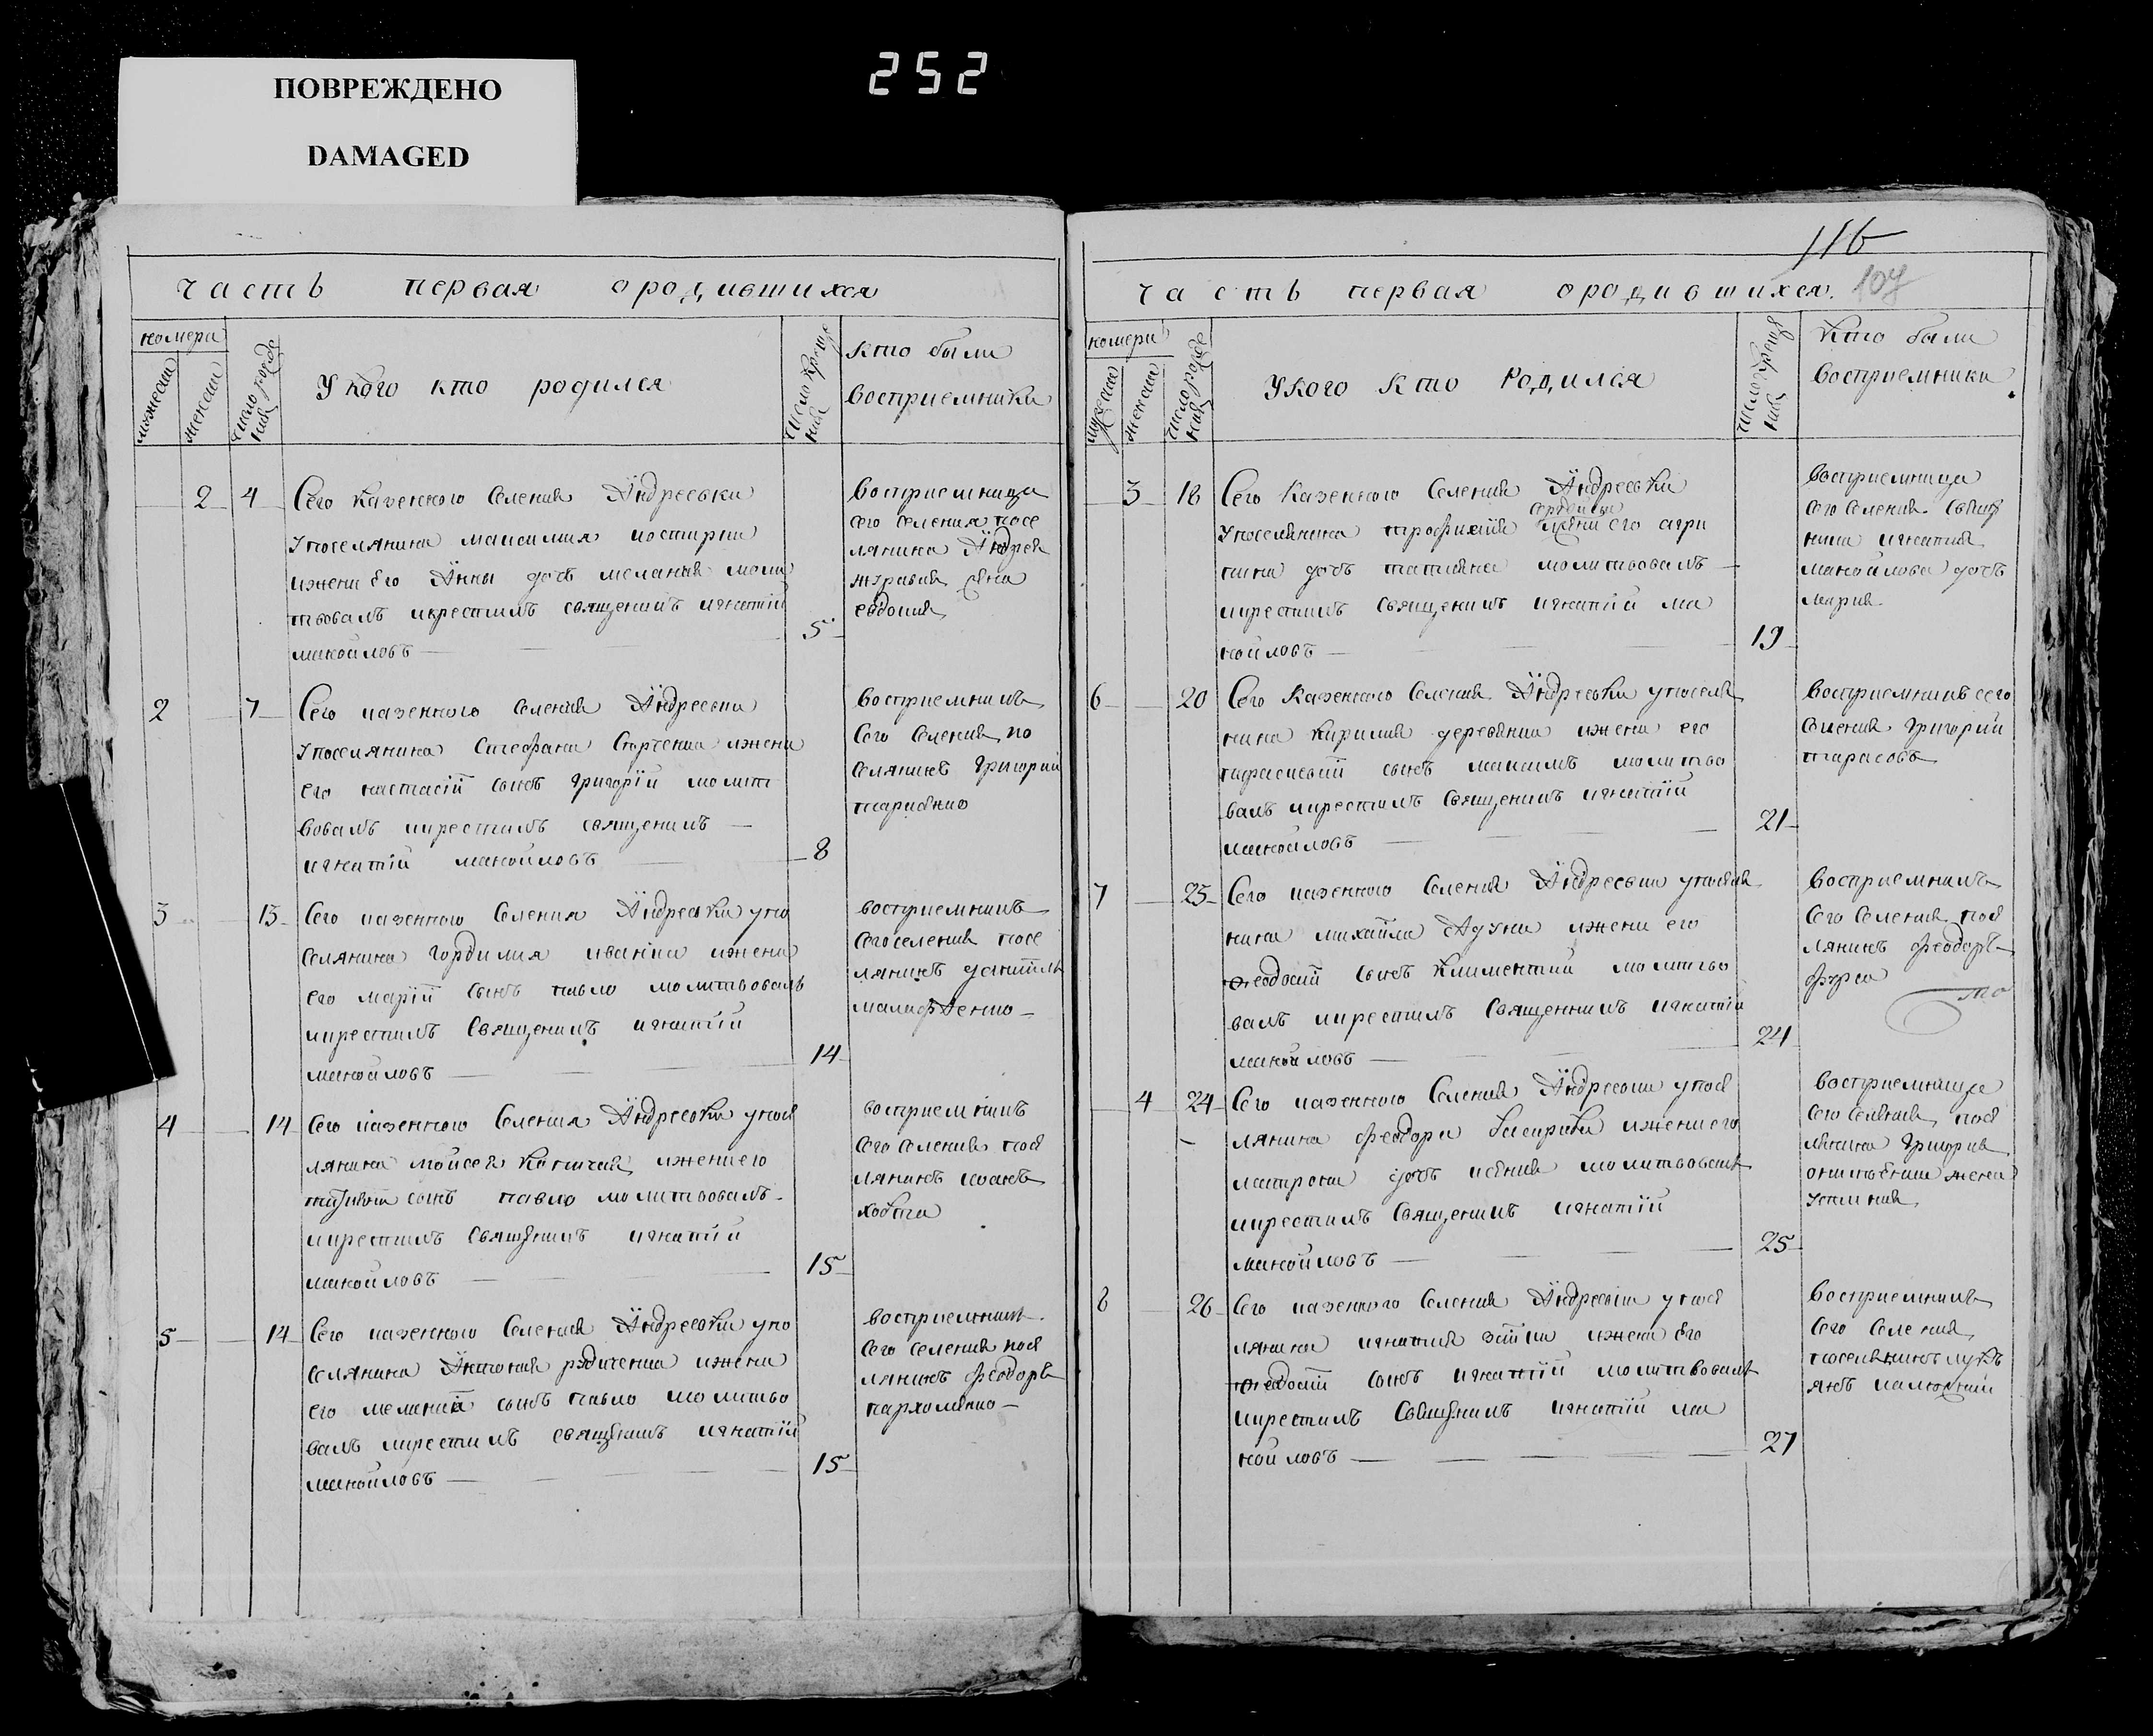 ПОВРЕЖДЕНО
DAMAGED
252
часть первая ородившихся
номера
мужеска
женска
число рожде
ния
У кого кто родился
число креще
ния
кто были
восприемники
2 4
Сего казенного Селения Андреевки
упоселянина максима
ижены Его Анны дочь мелания моли
твовалъ икрестилъ священикъ игнатій
манойловъ
5
восприемница
сего селения посе
лянина Андрея
журавля жена
евдокия
2 7
Сего казенного Селения Андреевки
упоселянина Стефана ижены
его настасіи сынъ григорій молит
вовалъ икрестилъ священикъ
игнатій манойловъ
8
восприемникъ
Сего Селения по
селянинъ григорий
3 13
Сего казенного Селения Андреевки упо
селянина гордия ижены
его маріи сынъ павло молитвовалъ
икрестилъ Священикъ игнатій
манойловъ
14
восприемникъ
Сего селения посе
лянинъ даниилъ
4 14
Сего казенного Селения Андреевки упосе
лянина мойсея ижены его
сынъ павло молитвовалъ
икрестилъ Священикъ игнатій
манойловъ
15
восприемникъ
Сего селения посе
лянинъ
5 14
Сего казенного Селения Андреевки упо
селянина Антония ижены
его меланіи сынъ павло молитво
валъ икрестилъ священикъ игнатій
манойловъ
15
восприемникъ
Сего селения посе
лянинъ феодоръ
пархоменко
116
107
часть первая ородившихся.
номера
мужеска
женска
число рожде
ния
У кого кто Родился
число креще
ния
Кто были
восприемники
3 18
Сего Казенного Селения Андреевки
упоселянина трофима жены его агри
пины дочь татияна молитвовалъ
икрестилъ священикъ игнатій ма
нойловъ
19
восприемница
Сего Селения Свяще
ника игнатия
манойлова дочь
мария
6 20
Сего Казенного Селения Андреевки упоселя
нина кирила ижены его
параскевіи сынъ максимъ молитво
валъ икрестилъ Священикъ игнатій
манойловъ
21
восприемникъ сего
Селения григорий
тарасовъ
7 23
Сего казенного Селения Андреевки упоселя
нина михаила ижены его
феодосіи сынъ климентий молитво
валъ икрестилъ Священникъ игнатій
манойловъ
24
восприемникъ
Сего Селения посе
лянинъ феодоръ
4 24
Сего казенного Селения Андреевки упосе
лянина феодора ижены его
матроны дочь молитвовалъ
икрестилъ Священикъ игнатій
манойловъ
25
восприемница
Сего Селения посе
лянина григория
жена
8 26
Сего казенного Селения Андреевки упосе
лянина игнатия ижены Его
феодосіи сынъ игнатій молитвовалъ
икрестилъ Священикъ игнатій ма
нойловъ
27
восприемникъ
Сего Селения
поселянинъ